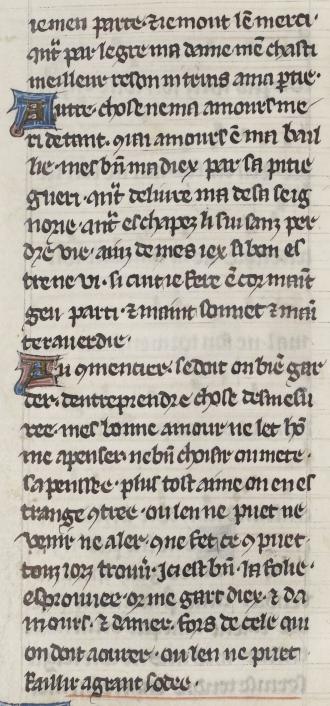 ie men parte · ⁊ ie mont lē merci ·
qñt par le gre ma dame mē chasti
meilleur reson ni truis a ma ptie ·
Autre chose ne ma amours me
ri de tant · q̄ iai amours ē ma bail
lie · mes bñ ma diex par sa pitie
gueri · qñt deliure ma de sa seig
norie · qñt eschapez li sui sanz per
dre vie · ainz de mes iex si bon es
tre ne vi · si cuit ie fere ē cor maīt
geu parti · ⁊ maint sonnet ⁊ maī
te rauerdie ·
Au ꝯmencier · se doit on biē gar
der · dentreprendre chose desmesu
ree · mes bonne amour ne let hō
me apenser · ne bñ choisir ou mete ·
sa pensee · plus tost aime on en es
trange ꝯtree · ou len ne puet ne
venir ne aler · q̄ ne fet ce q̄ puet
touz iorz trouū · ici est bñ · la folie ·
esprouuee · or me gart diex · ⁊ da
mours · ⁊ damer · fors de cele cui
on doit aourer · ou len ne puet
faillir a grant sodee ·